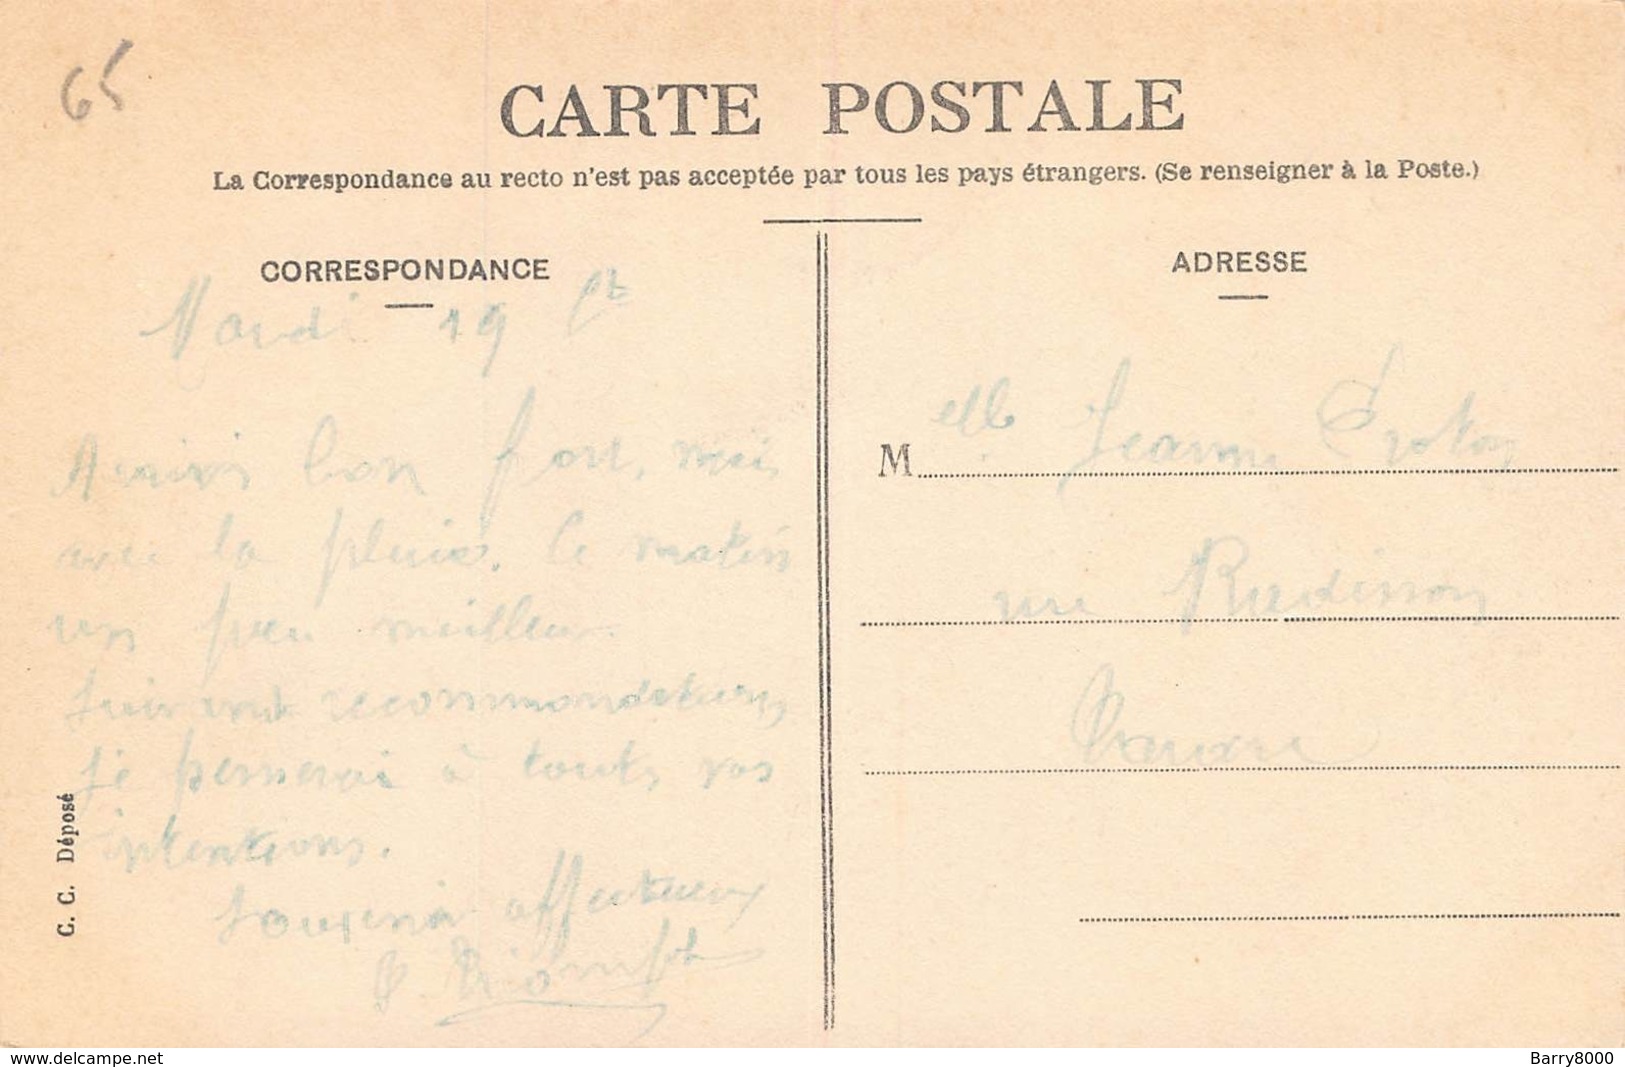 65
CARTE POSTALE
La Correspondance au recto n'est pas acceptée par tous les pays étrangers. (Se renseigner à la Poste.)
CORRESPONDANCE
Mardi 19
bon port, mais
la pluie. Ce matin
un peu meilleur
recommandations
je penserai à toutes vos
intentions.
Souvenir affectueux
C. C. Déposé
ADRESSE
M elle Jeanne
rue
www.delcampe.net
Barry8000